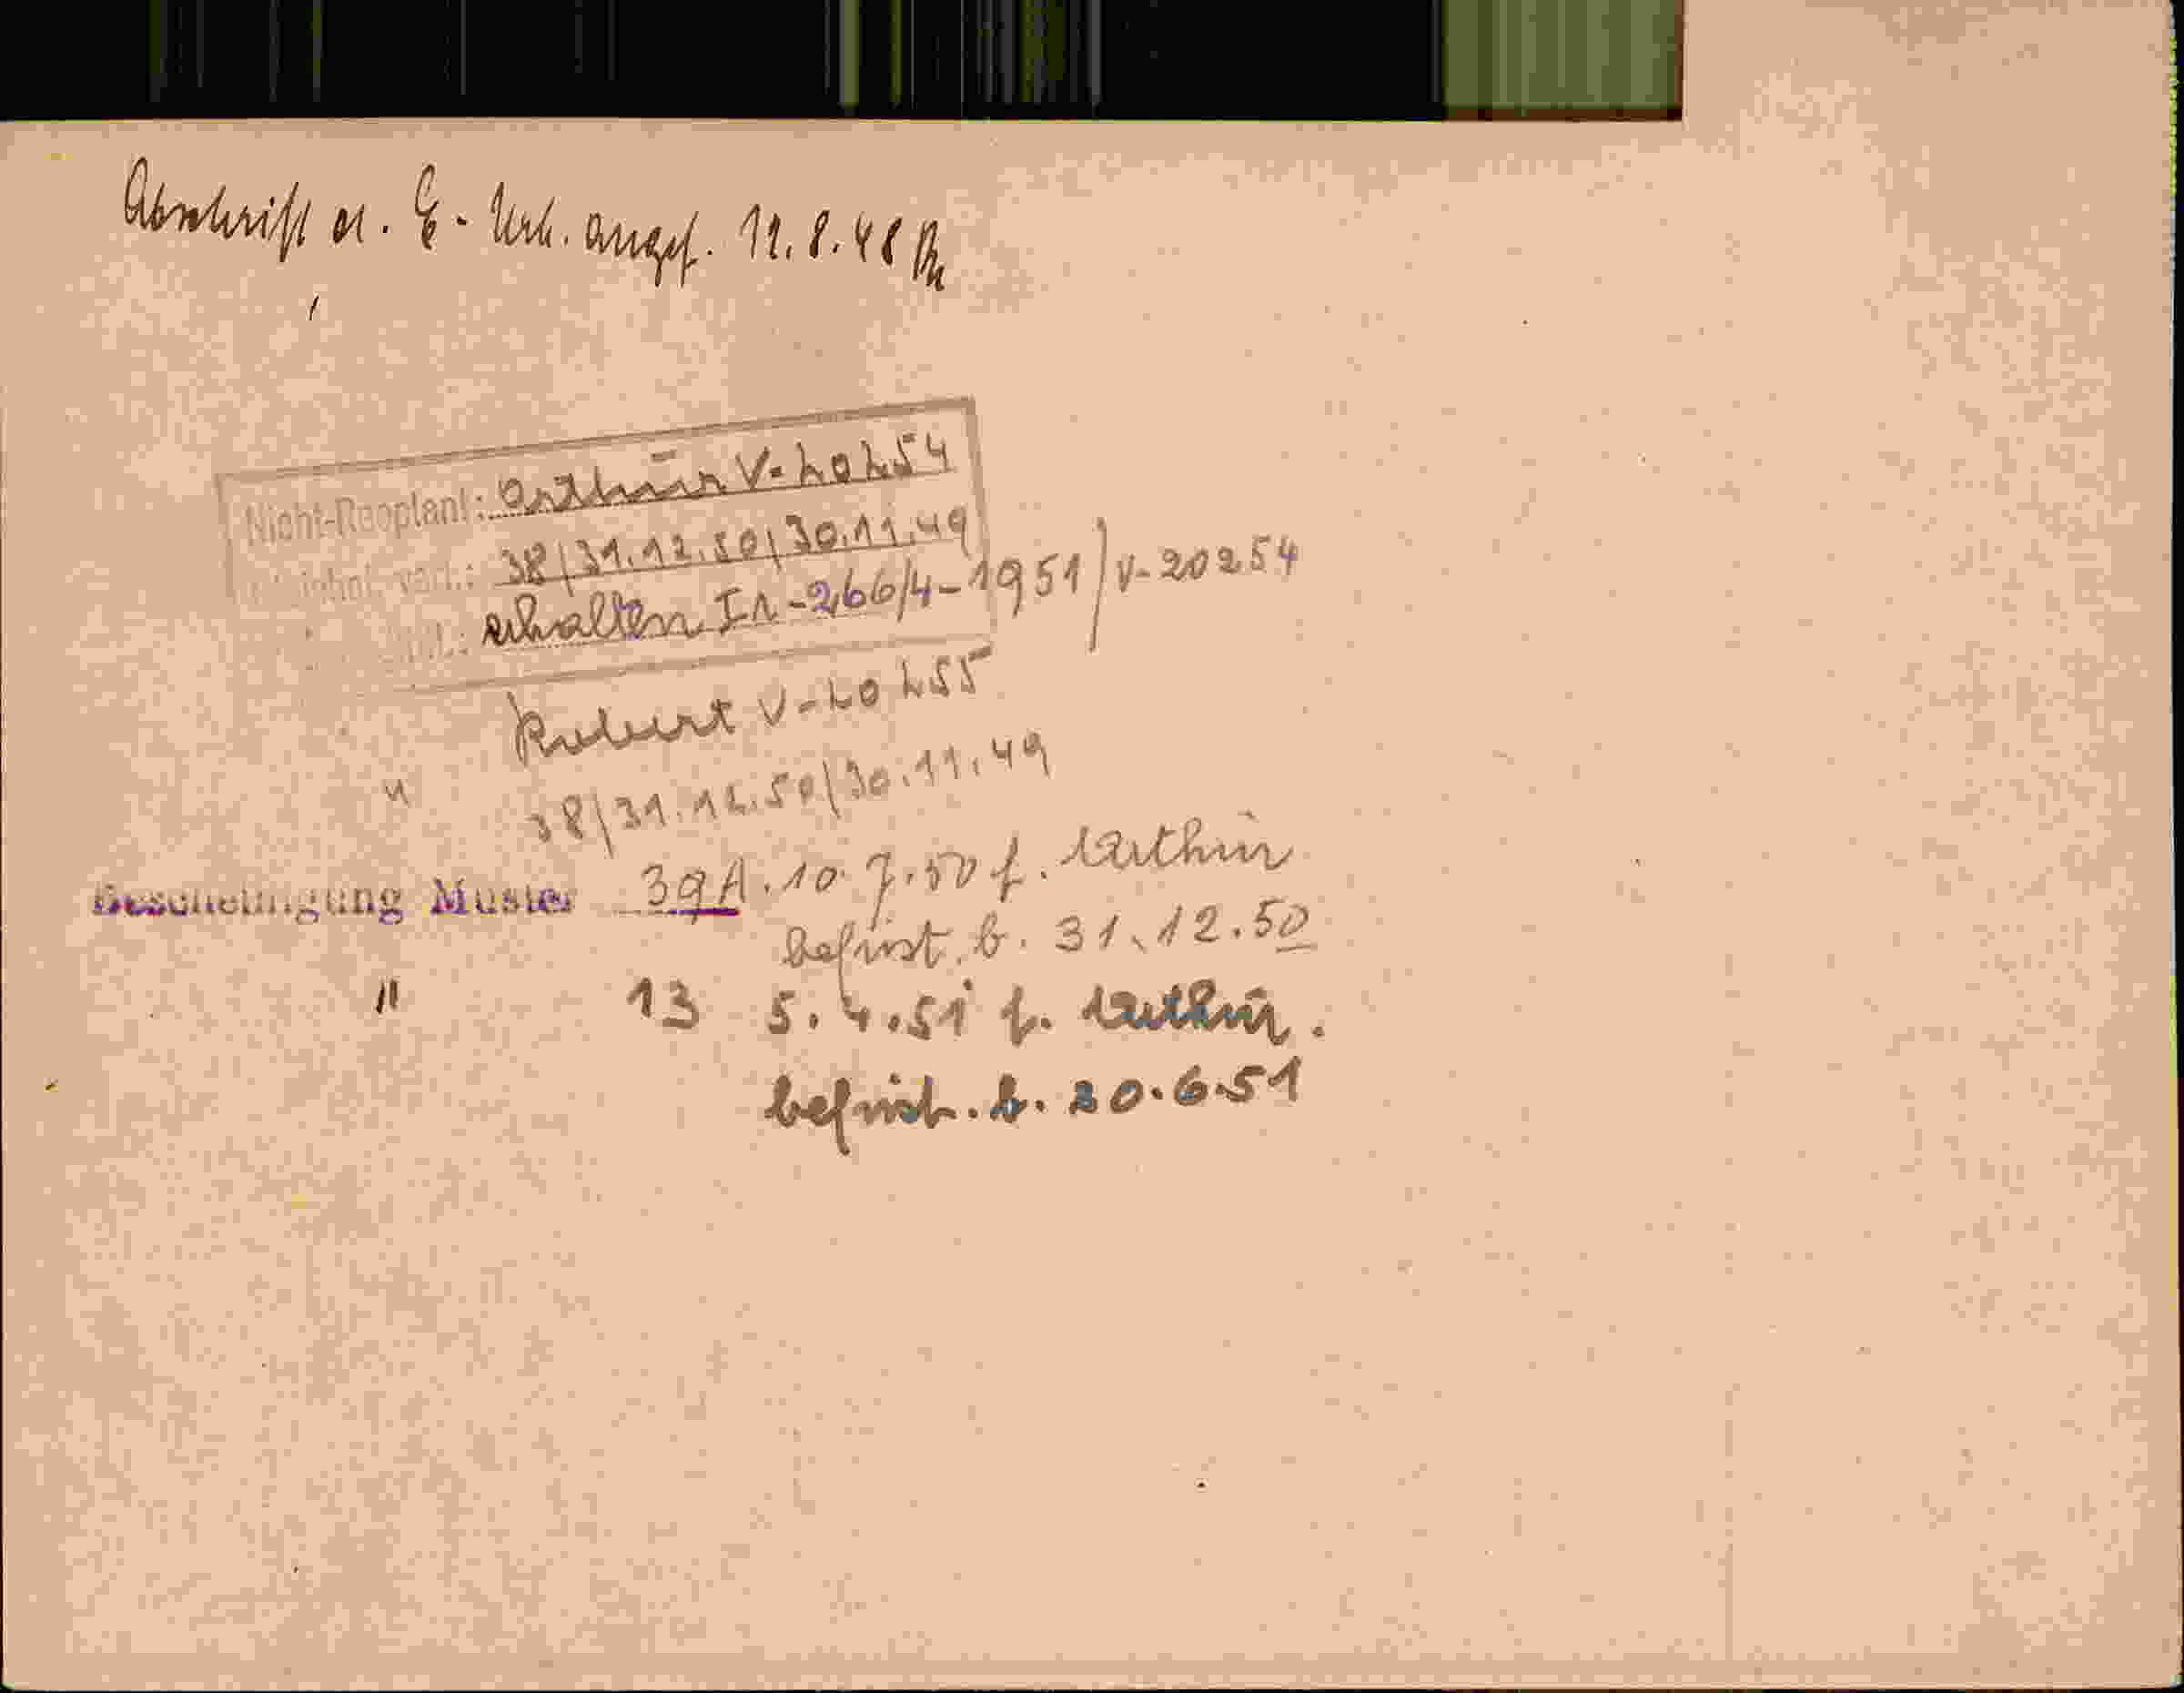 Abschrift a. E-Urk. angef. 11.8.48
Nicht-Reoptant: Arthur V-20254
38/31.12.50/30.11.49
erhalten In-266/4-1951/V-20254
Robert V-20255
" 38/31.12.50/30.11.49
Bescheinigung Muster 39A. 10.7.50 f. Arthur
befrist. b. 31.12.50
" 13 5.4.51 f. Arthur.
befrist. b. 20.6.51